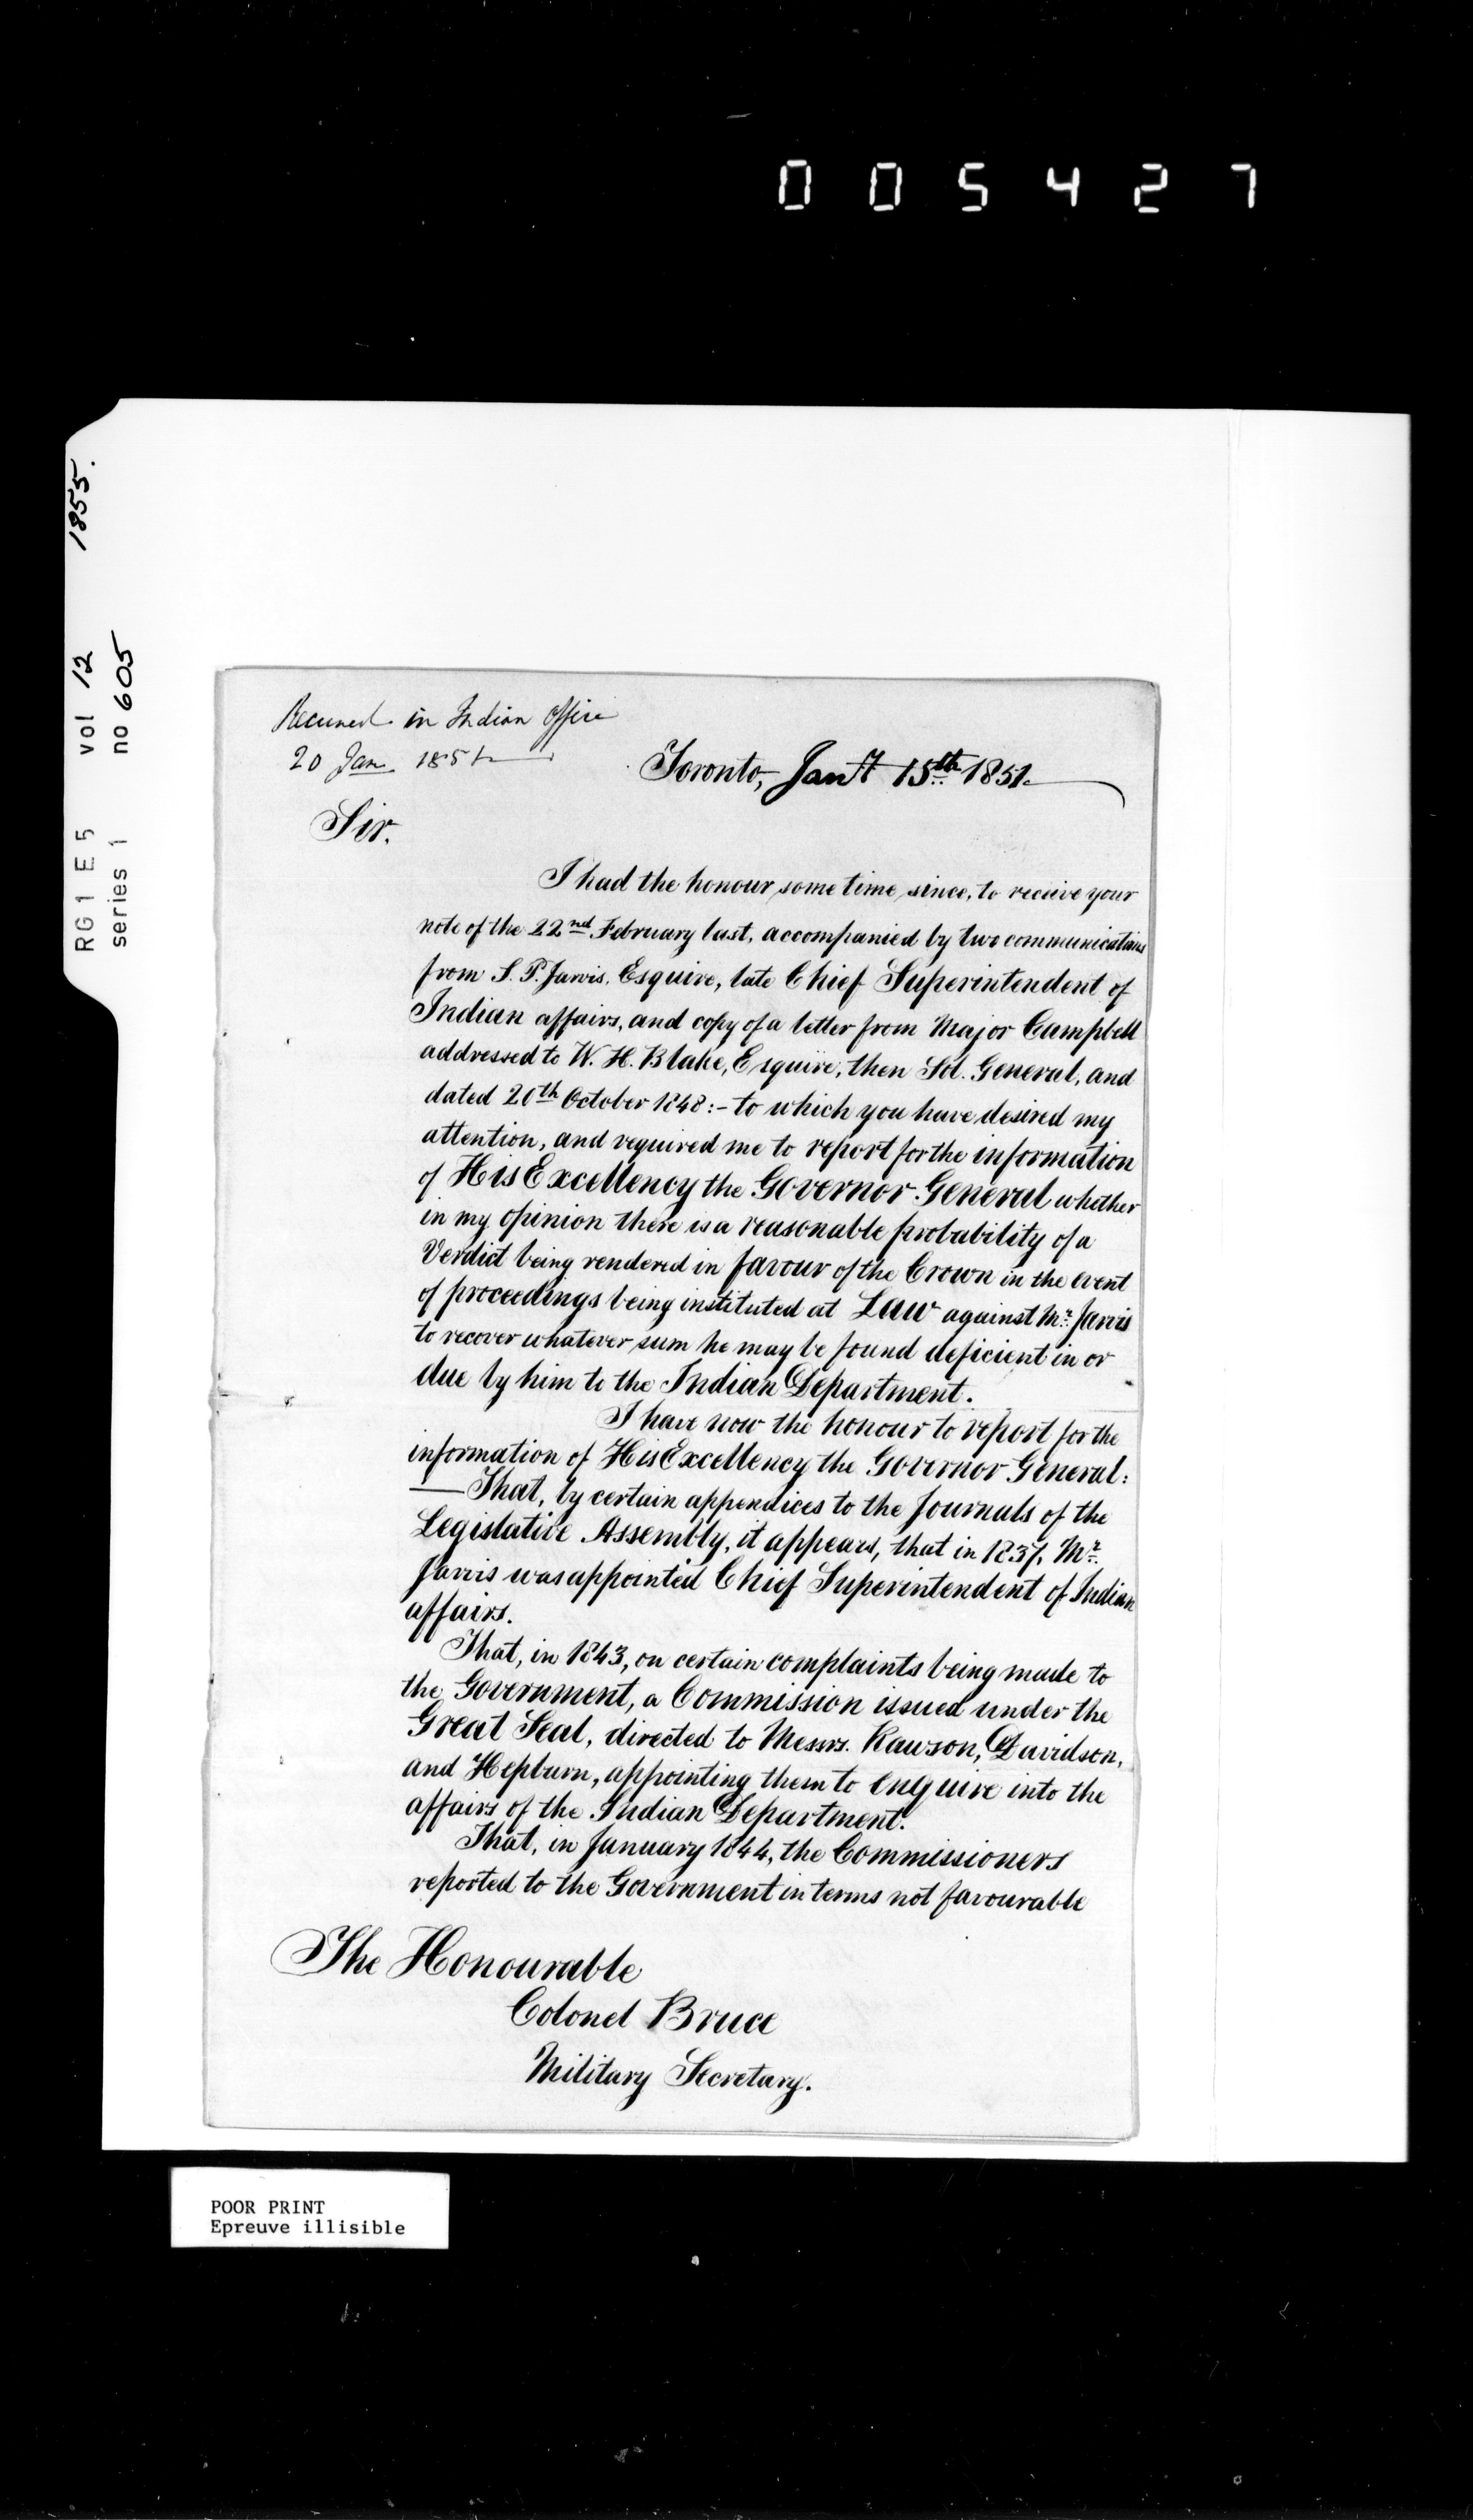 005427
1855.
vol 12
no 605
RG1 E5
series 1
Received in Indian Office
20 Jan 1851
Toronto, Jany 15th 1851
Sir.
I had the honour, some time, since, to receive your
note of the 22nd February last, accompanied by two communications
from S. P. Jarvis, Esquire, late Chief Superintendent of
Indian affairs, and copy of a letter from Major Campbell
addressed to W. H. Blake, Esquire, then Sol. General, and
dated 20th October 1848:- to which you have desired my
attention, and required me to report for the information
of His Excellency the Governor General whether
in my opinion there is a reasonable probability of a
Verdict being rendered in favour of the Crown in the event
of proceedings being instituted at Law against Mr. Jarvis
to recover whatever sum he may be found deficient in or
due by him to the Indian Department.
I have now the honour to report for the
information of His Excellency the Governor General:
—That, by certain appendices to the Journals of the
Legislative Assembly, it appears, that in 1837, Mr.
Jarvis was appointed Chief Superintendent of Indian
affairs.
That, in 1843, on certain complaints being made to
the Government, a Commission issued under the
Great Seal, directed to Messrs. Rawson, Davidson,
and Hepburn, appointing them to enquire into the
affairs of the Indian Department.
That, in January 1844, the Commissioners
reported to the Government in terms not favourable
The Honourable
Colonel Bruce
Military Secretary.
POOR PRINT
Epreuve illisible